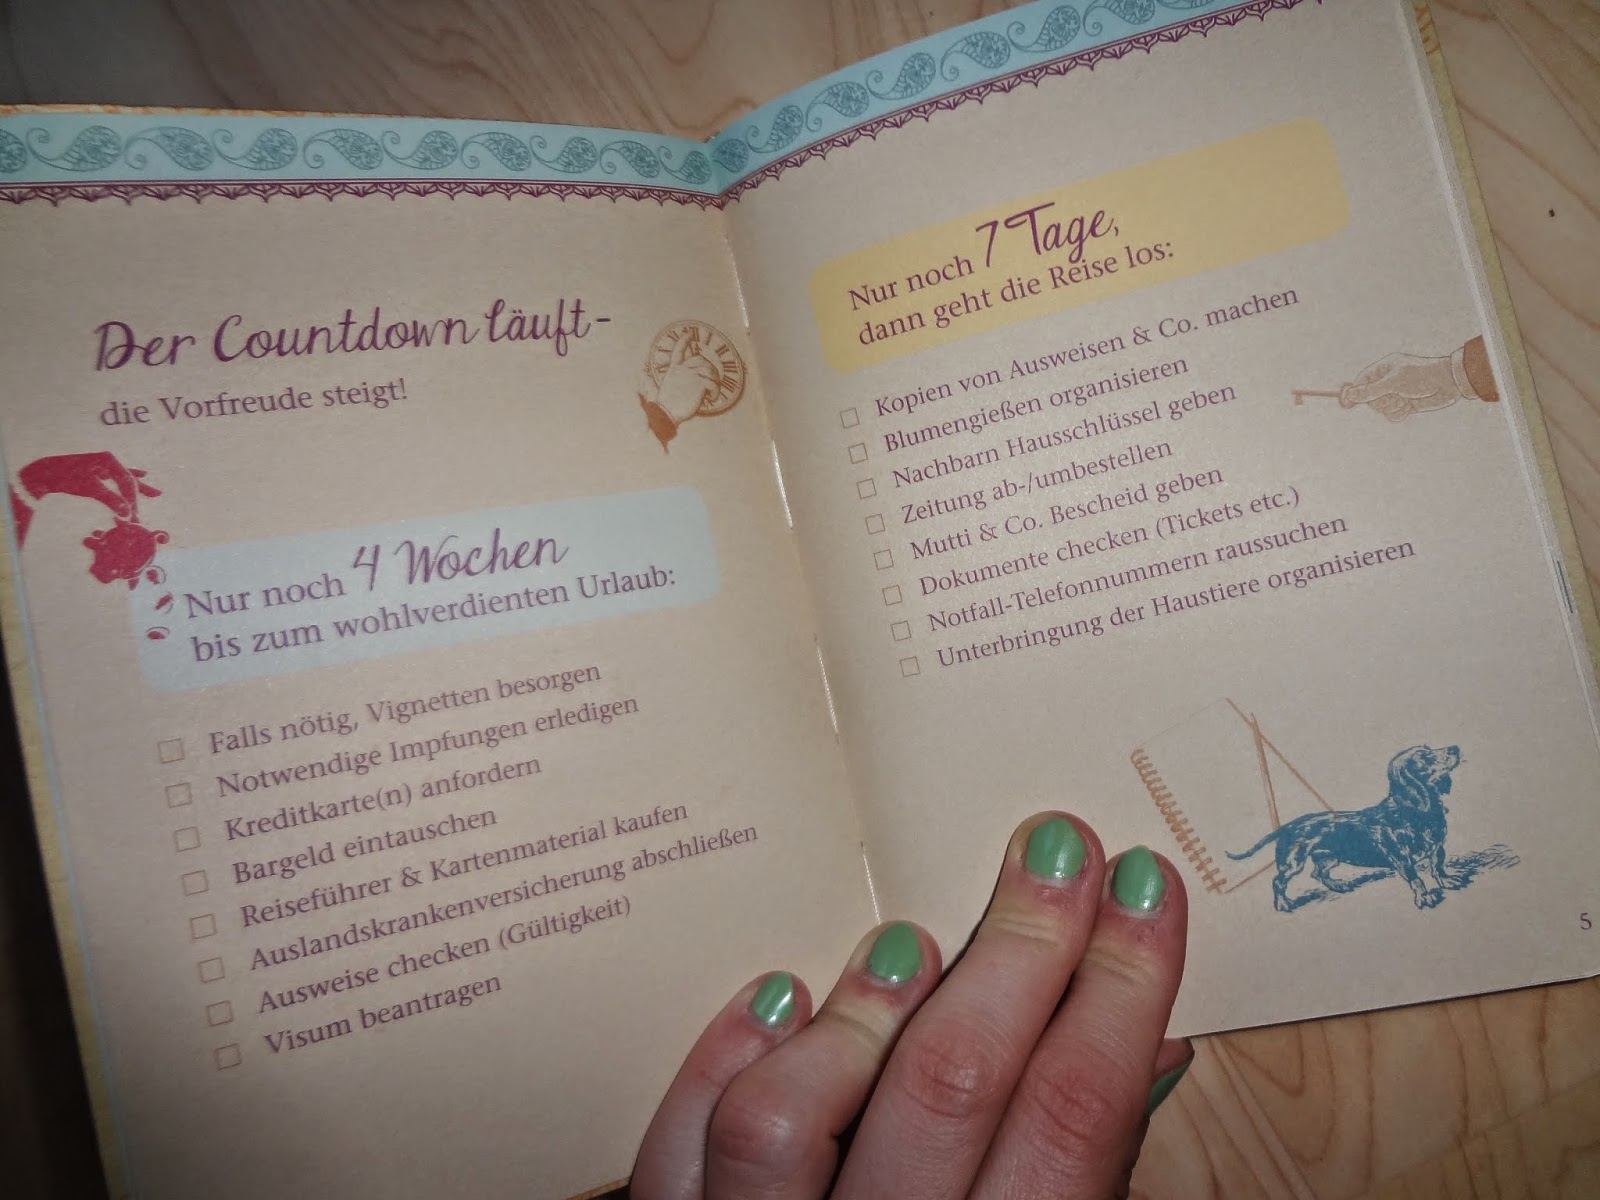 Der Countdown läuft-
die Vorfreude steigt!
Nur noch 4 Wochen
bis zum wohlverdienten Urlaub:
Falls nötig, Vignetten besorgen
Notwendige Impfungen erledigen
Kreditkarte(n) anfordern
Bargeld eintauschen
Reiseführer & Kartenmaterial kaufen
Auslandskrankenversicherung abschließen
Ausweise checken (Gültigkeit)
Visum beantragen
Nur noch 7 Tage,
dann geht die Reise los:
Kopien von Ausweisen & Co. machen
Blumengießen organisieren
Nachbarn Hausschlüssel geben
Zeitung ab-/umbestellen
Mutti & Co. Bescheid geben
Dokumente checken (Tickets etc.)
Notfall-Telefonnummern raussuchen
Unterbringung der Haustiere organisieren
5